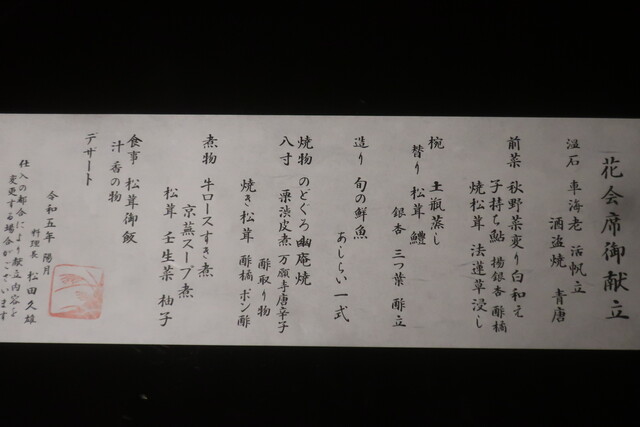 花会席御献立
温石 車海老 活帆立
酒盗焼 青唐
前菜 秋野菜変り白和え
子持ち鮎 揚銀杏 酢橘
焼松茸 法蓮草浸し
椀 土瓶蒸し
替り 松茸 鱧
銀杏 三つ葉 酢立
造り 旬の鮮魚
あしらい一式
焼物 のどぐろ幽庵焼
八寸 栗渋皮煮 万願寺唐辛子
酢取り物
焼き松茸 酢橘 ポン酢
煮物 牛ロースすき煮
京蕪スープ煮
松茸 壬生菜 柚子
食事 松茸御飯
汁 香の物
デザート
令和五年 陽月
料理長 松田久雄
仕入の都合により献立内容を
変更する場合がございます